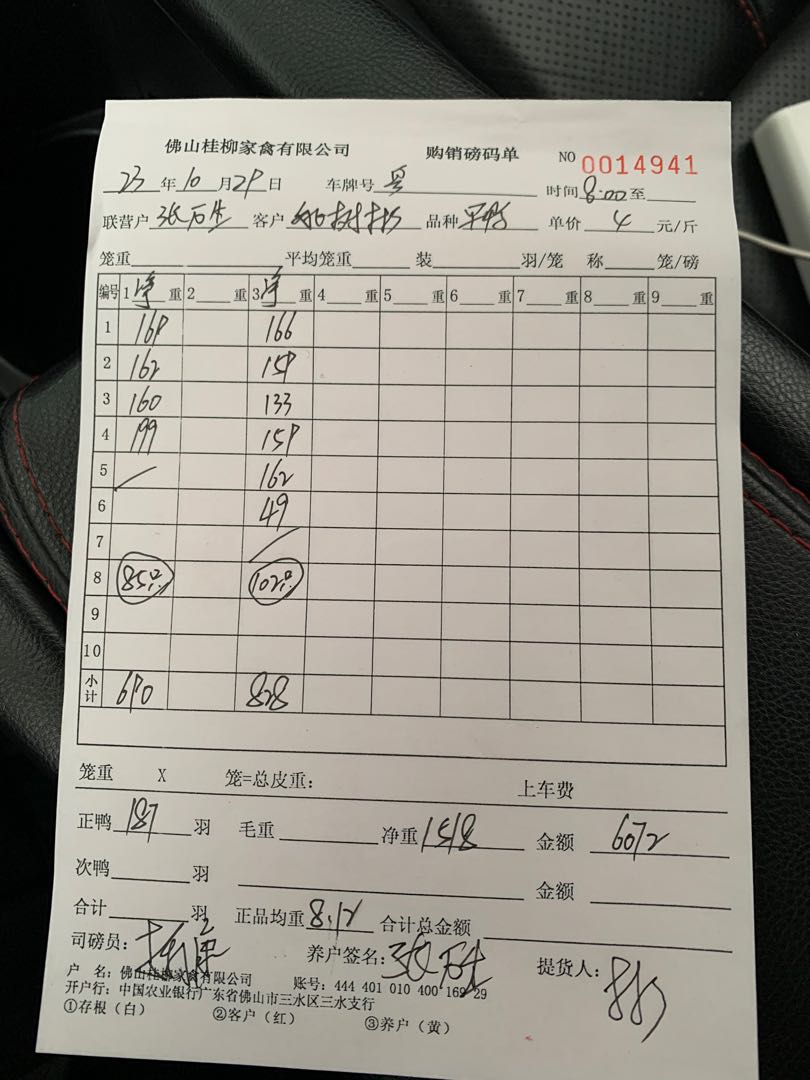 佛山桂柳家禽有限公司 购销磅码单 NO 0014941
23年10月29日 车牌号 时间8:00至
联营户 张石生 客户 品种 单价 4 元/斤
笼重 平均笼重 装 羽/笼 称 笼/磅
编号 1 净 重 2 重 3 净 重 4 重 5 重 6 重 7 重 8 重 9 重
1 169 166
2 162 159
3 160 133
4 199 159
5 162
6 49
7
8 85只 102只
9
10
小计 690 828
笼重 X 笼=总皮重: 上车费
正鸭 187 羽 毛重 净重 1518 金额 6072
次鸭 羽 金额
合计 羽 正品均重 8.12 合计总金额
司磅员: 养户签名: 张石生 提货人:
户 名: 佛山桂柳家禽有限公司 账号: 444 401 010 400 169 29
开户行: 中国农业银行广东省佛山市三水区三水支行
①存根(白) ②客户(红) ③养户(黄)